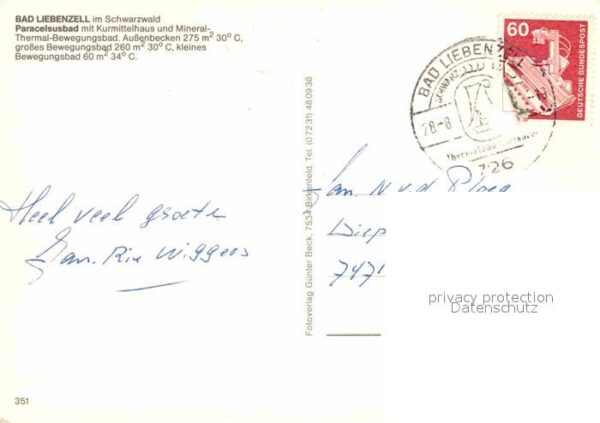 BAD LIEBENZELL im Schwarzwald
Paracelsusbad mit Kurmittelhaus und Mineral-
Thermal-Bewegungsbad. Außenbecken 275 m² 30° C,
großes Bewegungsbad 260 m² 30° C, kleines
Bewegungsbad 60 m² 34° C.
60
DEUTSCHE BUNDESPOST
BAD LIEBENZELL
28-8
Fotoverlag Günter Beck, 7534 Birkenfeld, Tel. (07231) 480938
Heel veel groeten
Fam. Rie Wiggers
Fam. N v.d. Ploeg
Diep
7471
privacy protection
Datenschutz
351